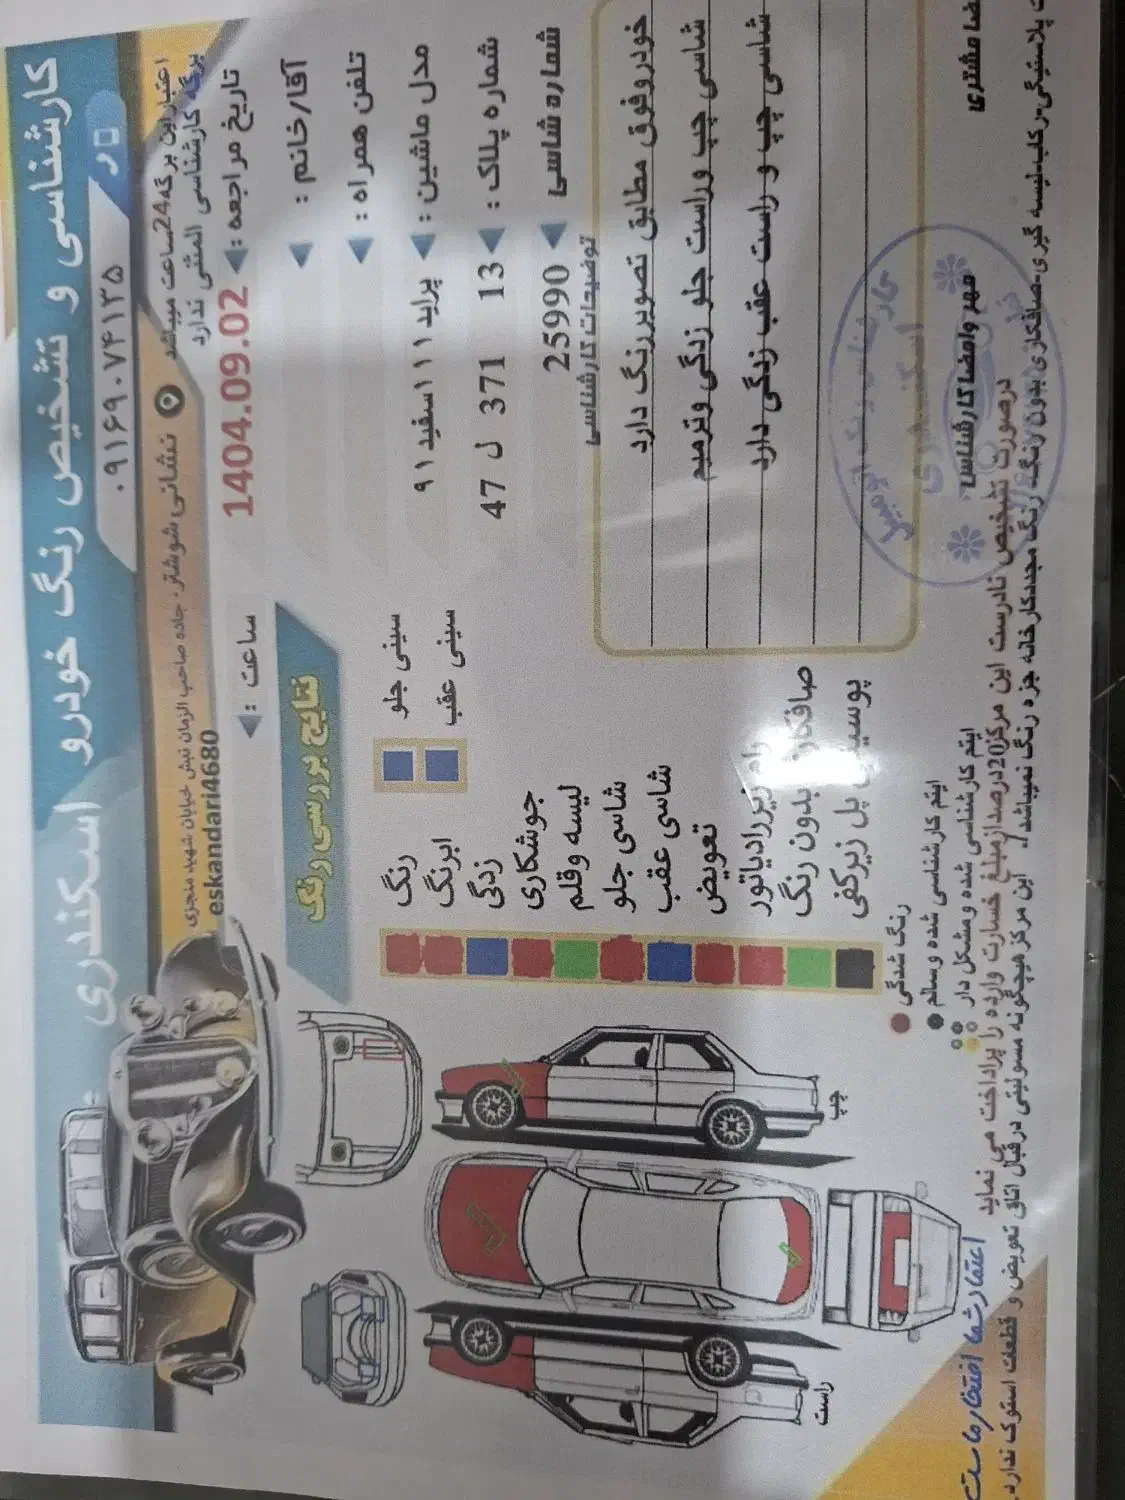 کارشناسی و تشخیص رنگ خودرو اسکندری
۰۹۱۶۹۰۷۴۱۳۵
اعتبار این برگه 24 ساعت میباشد
برگه کارشناسی المثنی ندارد
نشانی شوشتر - جاده صاحب الزمان نبش خیابان شهید منجزی
eskandari4680
تاریخ مراجعه : 1404.09.02
ساعت :
آقا/خانم :
تلفن همراه :
مدل ماشین : پراید ۱۱۱ سفید ۹۱
شماره پلاک : 13 371 ل 47
شماره شاسی 25990
توضیحات کارشناسی
خودرو فوق مطابق تصویر رنگ دارد
شاسی چپ و راست جلو زدگی و ترمیم
شاسی چپ و راست عقب زدگی دارد
نتایج بررسی رنگ
سینی جلو
سینی عقب
رنگ
ابرنگ
زدگی
جوشکاری
لیسه و قلم
شاسی جلو
شاسی عقب
تعویض
زیر رادیاتور
بدون رنگ
پل زیرکفی
چپ
راست
رنگ شدگی
ایتم کارشناسی شده و سالم
ایتم کارشناسی شده و مشکل دار
مهر و امضا کارشناس
امضا مشتری
اسکندری
درصورت تشخیص نادرست این مرکز 20 درصد از مبلغ خسارت وارده را پرداخت می نماید
پلاستیکی-رکاب-لیسه گیری-صافکاری بدون رنگ-رنگ مجدد کارخانه جزء رنگ نمیباشد/. این مرکز هیچگونه مسولیتی در قبال اتاق تعویض و قطعات استوک ندارد.
اعتماد شما افتخار ماست